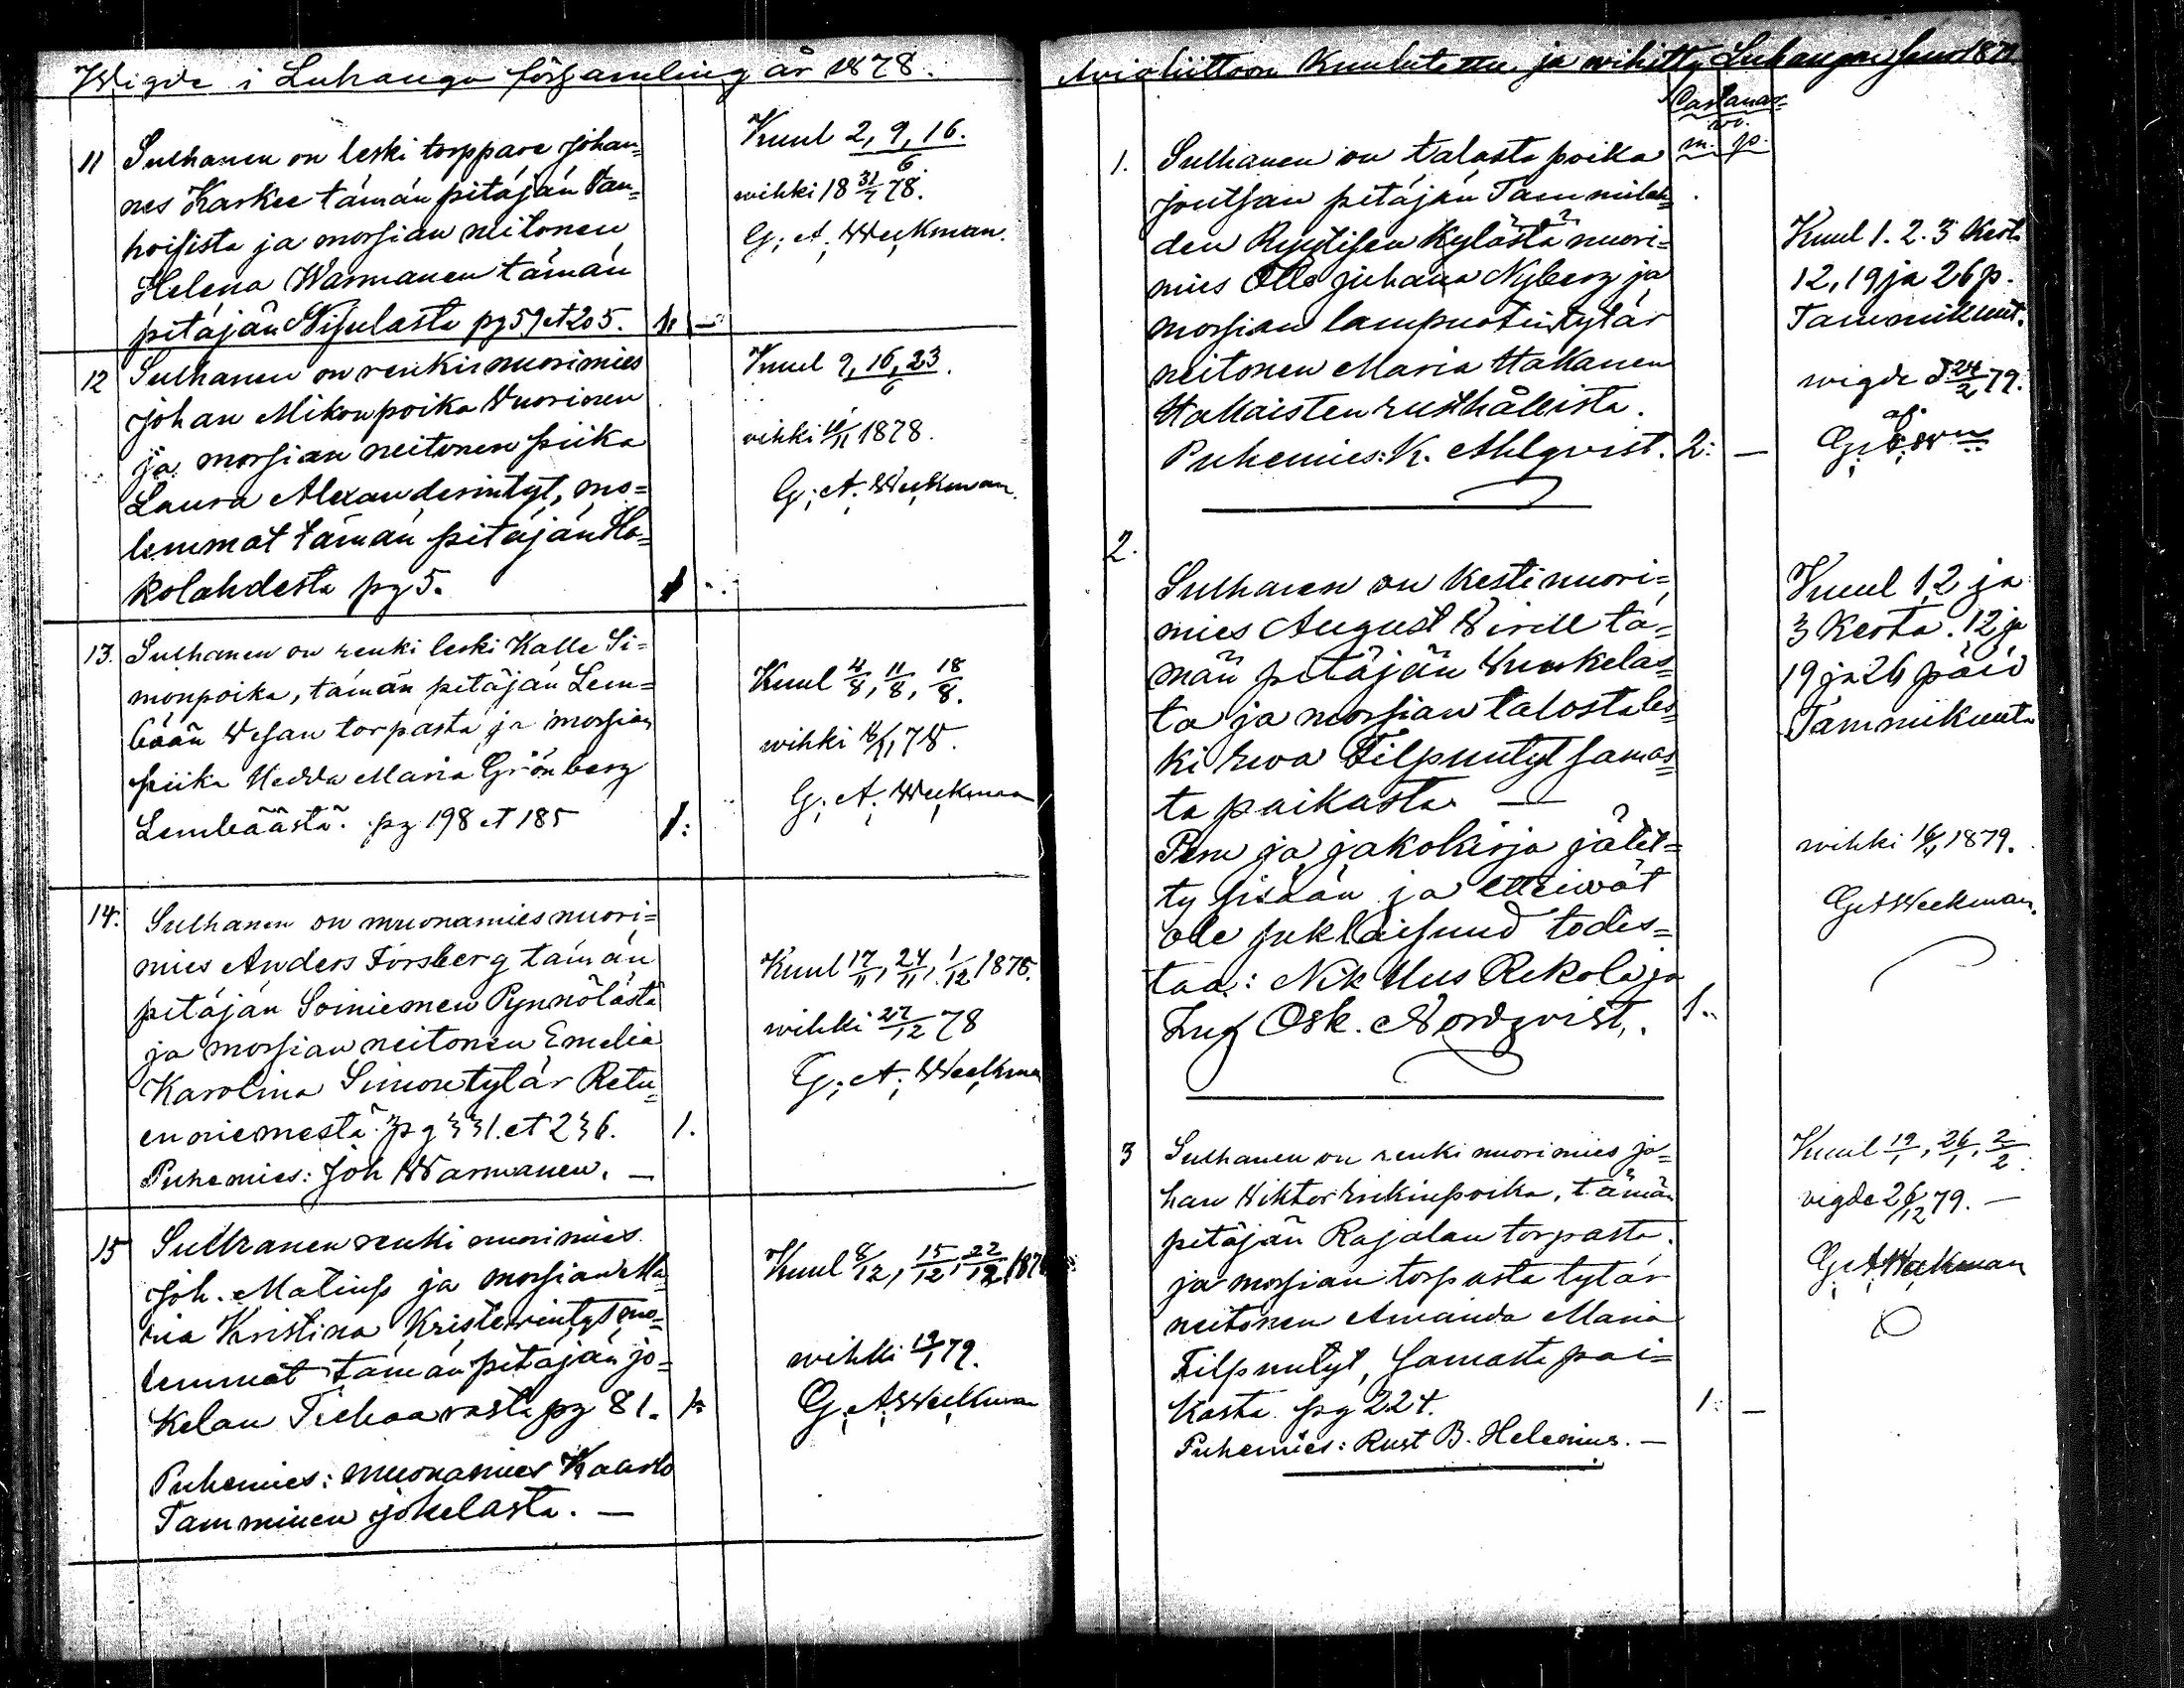 Wigde i Luhanga församling år 1878.
11 Sulhanen on leski torppare Johan=
nes Karkee tämän pitäjän Van=
hoisista ja morsian neitonen
Helena Warmanen tämän
pitäjän Nisulasta pg 59 et 205. 1. —
Kuul 2, 9, 16.
6.
wihki 18 31/7 78.
G. A. Weckman.
12 Sulhanen on renki nuorimies
Johan Mikonpoika Vuorinen
ja morsian neitonen piika
Laura Alexanderintyt, mo=
lemmat tämän pitäjän Ho=
kolahdesta pg 5. 1
Kuul 9, 16, 23.
6
vihki 1878.
G. A. Weckman.
13. Sulhanen on renki leski Kalle Si=
monpoika, tämän pitäjän Lem=
bään Vesan torpasta ja morsian
piika Hedda Maria Grönberg
Lembäästä. pg 198 et 185 1:
Kuul 4/8, 11/8, 18/8.
wihki 78.
G. A. Weckman
14. Sulhanen on muonamies nuori=
mies Anders Forsberg tämän
pitäjän Soiniemen Pynnölästä
ja morsian neitonen Emelia
Karolina Simontytär Retu=
enniemestä pg 331. et 236. 1.
Puhemies: Joh Warmanen. —
Kuul 17/11, 24/11, 1/12 1878.
wihki 27/12 78
G. A. Weckman
15 Sulhanen renki nuorimies
Joh. Matinp ja morsian Ma=
ria Kristina Kristerintyt mo=
lemmat tämän pitäjän Jo=
kelan pg 81. 1.
Puhemies: muonamies Kaarlo
Tamminen Jokelasta. —
Kuul 8/12, 15/12, 22/12 1878
wihki 19/1 79.
G. A. Weckman
Avioliittoon Kuulutettu ja wihitty Luhangan 1879
m. p.
1. Sulhanen on talosta poika
Joutsan pitäjän Tammilah=
den kylästä nuori=
mies Olle Juhana Nyberg ja
morsian lampuotin tytär
neitonen Maria Hakkanen
Hakkaisten rusthållista.
Puhemies: K. Ahlqvist. 2: —
Kuul 1. 2. 3 kert.
12, 19 ja 26 p.
Tammikuut.
wigde d 24/2 79.
af
2.
Sulhanen on kesti nuori=
mies August Virell tä=
män pitäjän
ta ja morsian talosta les=
ki Eeva Filpuntyt samas=
ta paikasta —
Peru ja jakokirja jätet=
ty sisään ja etteiwät
ole sukulaisuud todis=
taa: Rekola ja
Osk. Nordqvist. 1.
Kuul 1, 2 ja
3 kerta. 12 ja
19 ja 26 päiv
Tammikuuta
wihki 1879.
G A Weckman.
3 Sulhanen on renki nuorimies Jo=
han Wiktor Erikinpoika, tämän
pitäjän Rajalan torpasta
ja morsian torpasta tytär
neitonen Amanda Maria
Filpuntyt, samasta pai=
kasta. pg 224. 1. —
Puhemies: Rust B. Helenius. —
Kuul 19/1, 26/1, 2/2.
vigde 26/12 79. —
G A Weckman